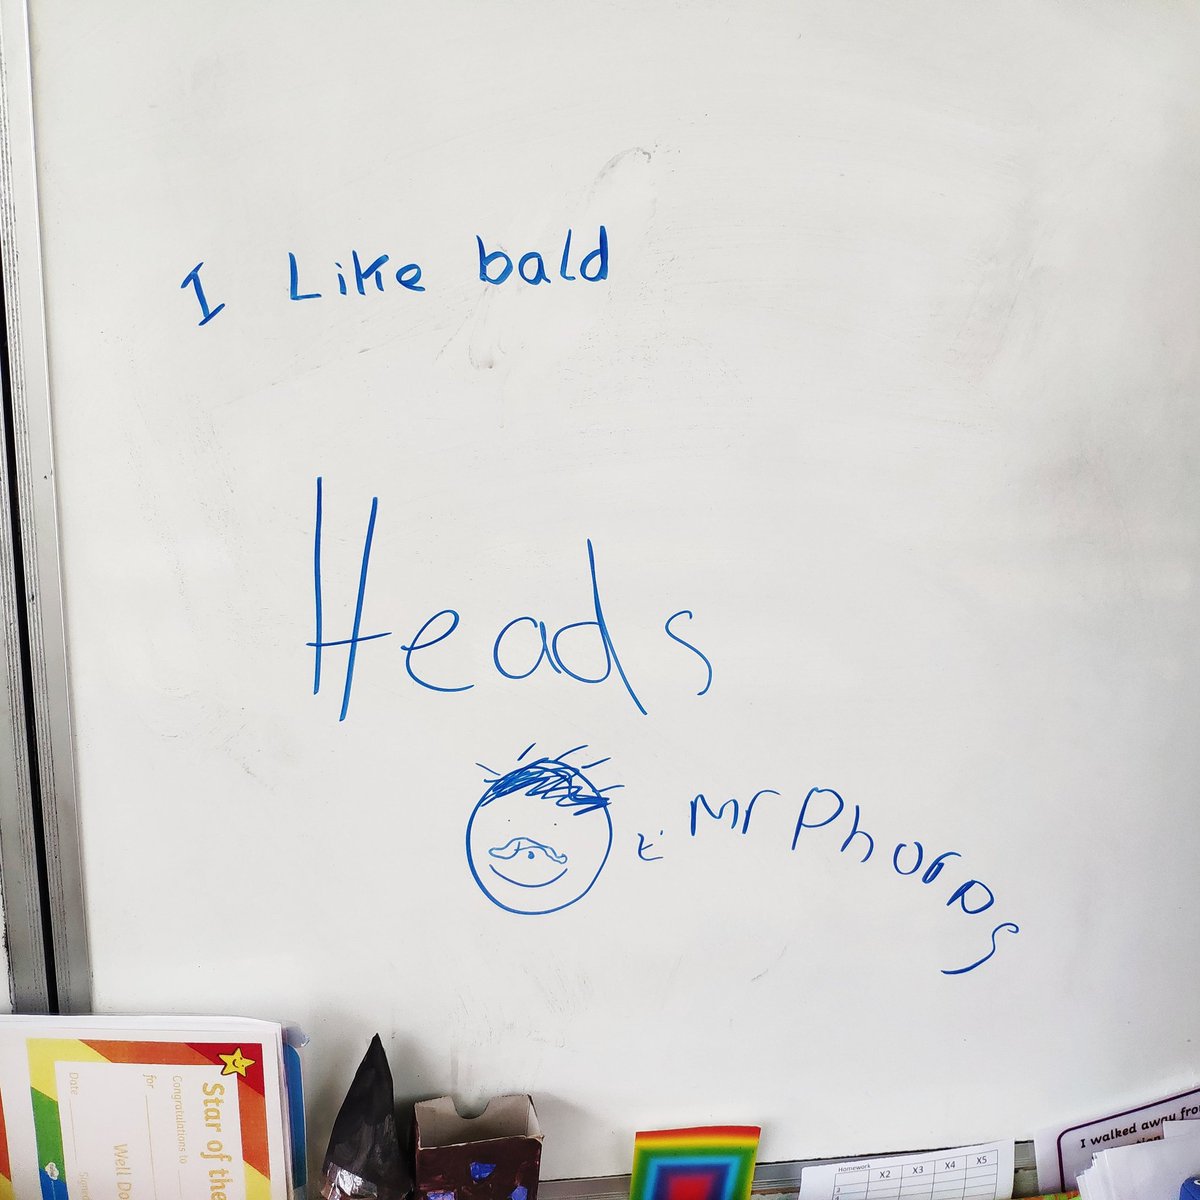 I Like bald
Heads
Mr Phorps
Star of the
Congratulations to
for
Well Do
Date
Signed
Homework
X2 X3 X4 X5
2
I walked away fro